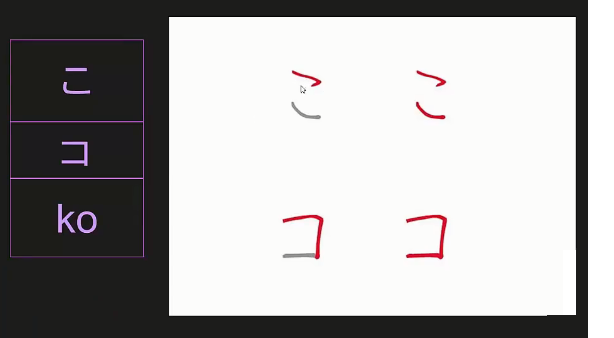 こ
コ
ko
こ こ
コ コ